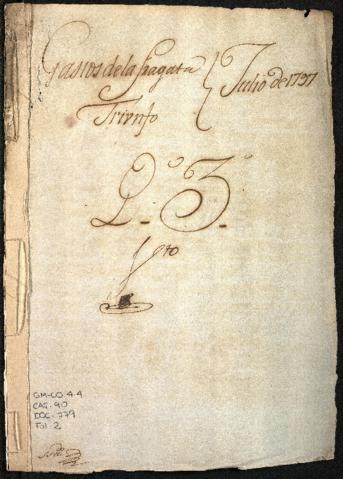 Gastos de la fragata
Triunfo
Julio de 1797
Q.º 3.º
GM-CO 4.4
CAJ. 90
DOC. 779
Fol. 2